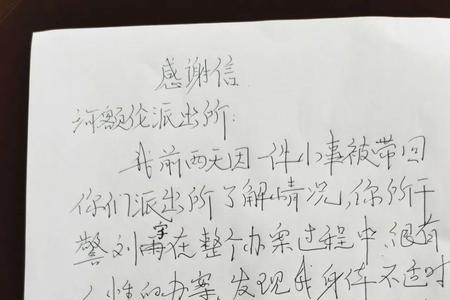 感谢信
河额伦派出所:
我前两天因一件小事被带回
你们派出所了解情况,你所干
警刘宇在整个办案过程中,很有
人性的办案,发现我身体不适时